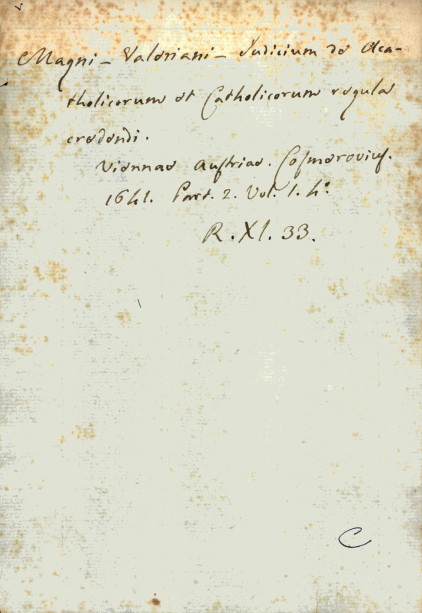 Magni - Valeriani - Judicium de Aca-
tholicorum et Catholicorum regula
credendi.
Viennae Austriae. Cosmerovius.
1641. Part. 2. Vol. 1. 4º
R. XI. 33.
C